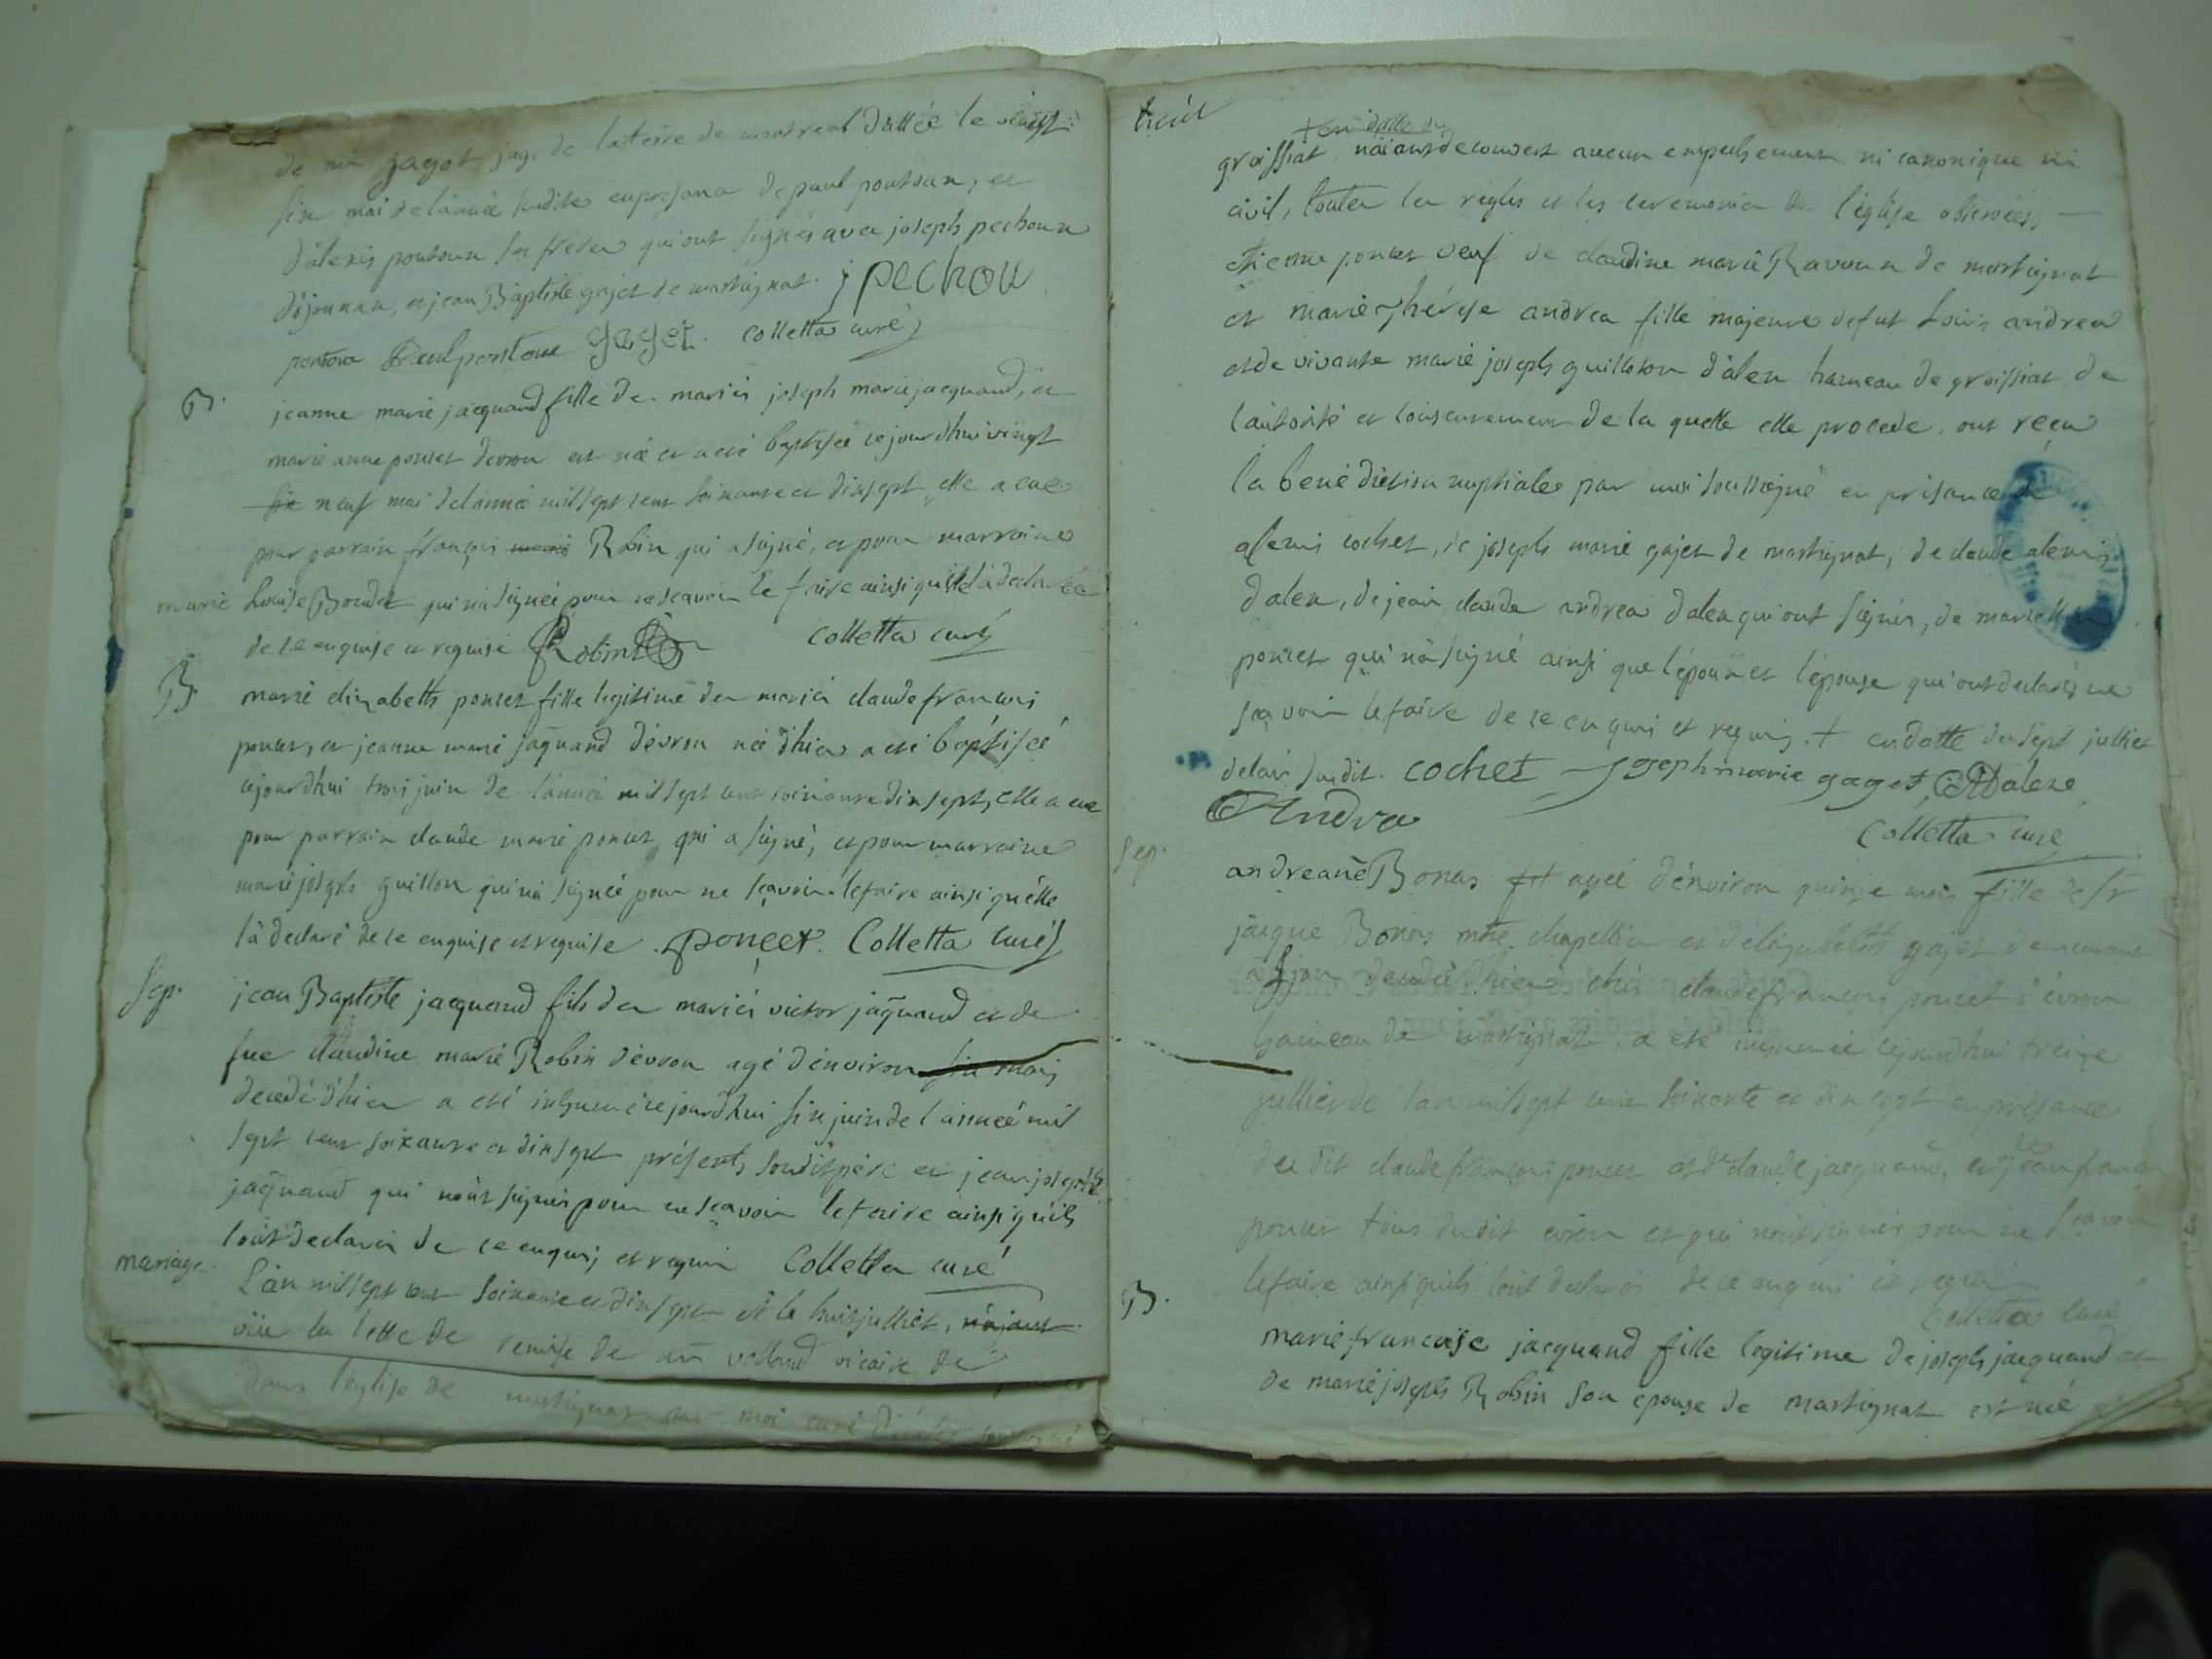 de mr jagot juge de la terre de montreal dattée le vingt
six mai de l'année susdite en presance de paul pontoux, et
d'alexis pontoux ses freres qui ont signés avec joseph pechoux
d'ojonnax, et jean Baptiste gajet de martignat. j pechou
pontoux Paul pontoux gaget. Colletta curé
B.
jeanne marie jacquand fille des mariés joseph marie jacquand, et
marie anne poncet d'evron est née et a eté baptisée cejourdhui vingt
six neuf mai de l'année mil sept cent soixante et dix sept, elle a eue
pour parrain françois marie Robin qui a signé, et pour marraine
marie Louise Boudet qui n'a signée pour ne scavoir le faire ainsi qu'elle l'a declarée
de ce enquise et requise Robin Colletta curé
B.
marie elizabeth poncet fille legitime des mariés claude francois
poncet, et jeanne marie jaquand d'evron née d'hier a eté baptisée
cejourdhui trois juin de l'année mil sept cent soixante dix sept, elle a eue
pour parrain claude marie poncet, qui a signé, et pour marraine
marie joseph guillon qui n'a signée pour ne scavoir le faire ainsi qu'elle
l'a declaré de ce enquise et requise. poncet. Colletta curé
sep.
jean Baptiste jacquand fils des mariés victor jaquand et de
fue claudine marie Robin d'evron agé d'environ six mois
decedé d'hier a eté inhumé cejourdhui six juin de l'année mil
sept cent soixante et dix sept présents son dit père et jean joseph
jaquand qui n'ont signés pour ne scavoir le faire ainsi qu'ils
l'ont declarés de ce enquis et requis Colletta curé
mariage
L'an mil sept cent soixante et dix sept et le huit julliet, n'ajant
vüe la lettre de remise de mr volland vicaire de
dans l'eglise de martignat par moi curé
+ en datte du
groissiat n'aiant decouvert aucun empechement ni canonique ni
civil, toutes les regles et les ceremonies de l'église observées,
etienne poncet veuf de claudine marie Ravoux de martignat
et marie Thérese andrea fille majeure de fut Louis andrea
et de vivante marie joseph guilloton d'alex hameau de groissiat de
l'autorité et consentement de la quelle elle procede, ont reçu
la benediction nuptiale par moi soussigné en presance de
alexis cochet, de joseph marie gajet de martignat, de claude alexis
dalex, de jean claude andrea dalex qui ont signés, de marie
poncet qui n'a signé ainsi que l'époux et l'épouse qui ont declarés ne
scavoir le faire de ce enquis et requis. + en datte du sept julliet
de l'an susdit. cochet joseph marie gaget, Dalexe
Andrea Colletta curé
sep.
andreane Bonas fit agée d'environ quinze mois fille de sr
jacque Bonas mtre chapellier et d'elizabeth gajet demeurant
à decedée d'hier chés claude francois poncet d'evron
hameau de martignat, a eté inhumée cejourdhui treize
julliet de l'an mil sept cent soixante et dix sept en présance
du dit claude francois poncet et de claude jacquand, et de jean francois
poncet tous du dit evron et qui n'ont signés pour ne scavoir
le faire ainsi qu'ils l'ont declarés de ce enquis et requis
Colletta curé
B.
marie francoise jacquand fille legitime de joseph jacquand et
de marie joseph Robin son epouse de martignat est née